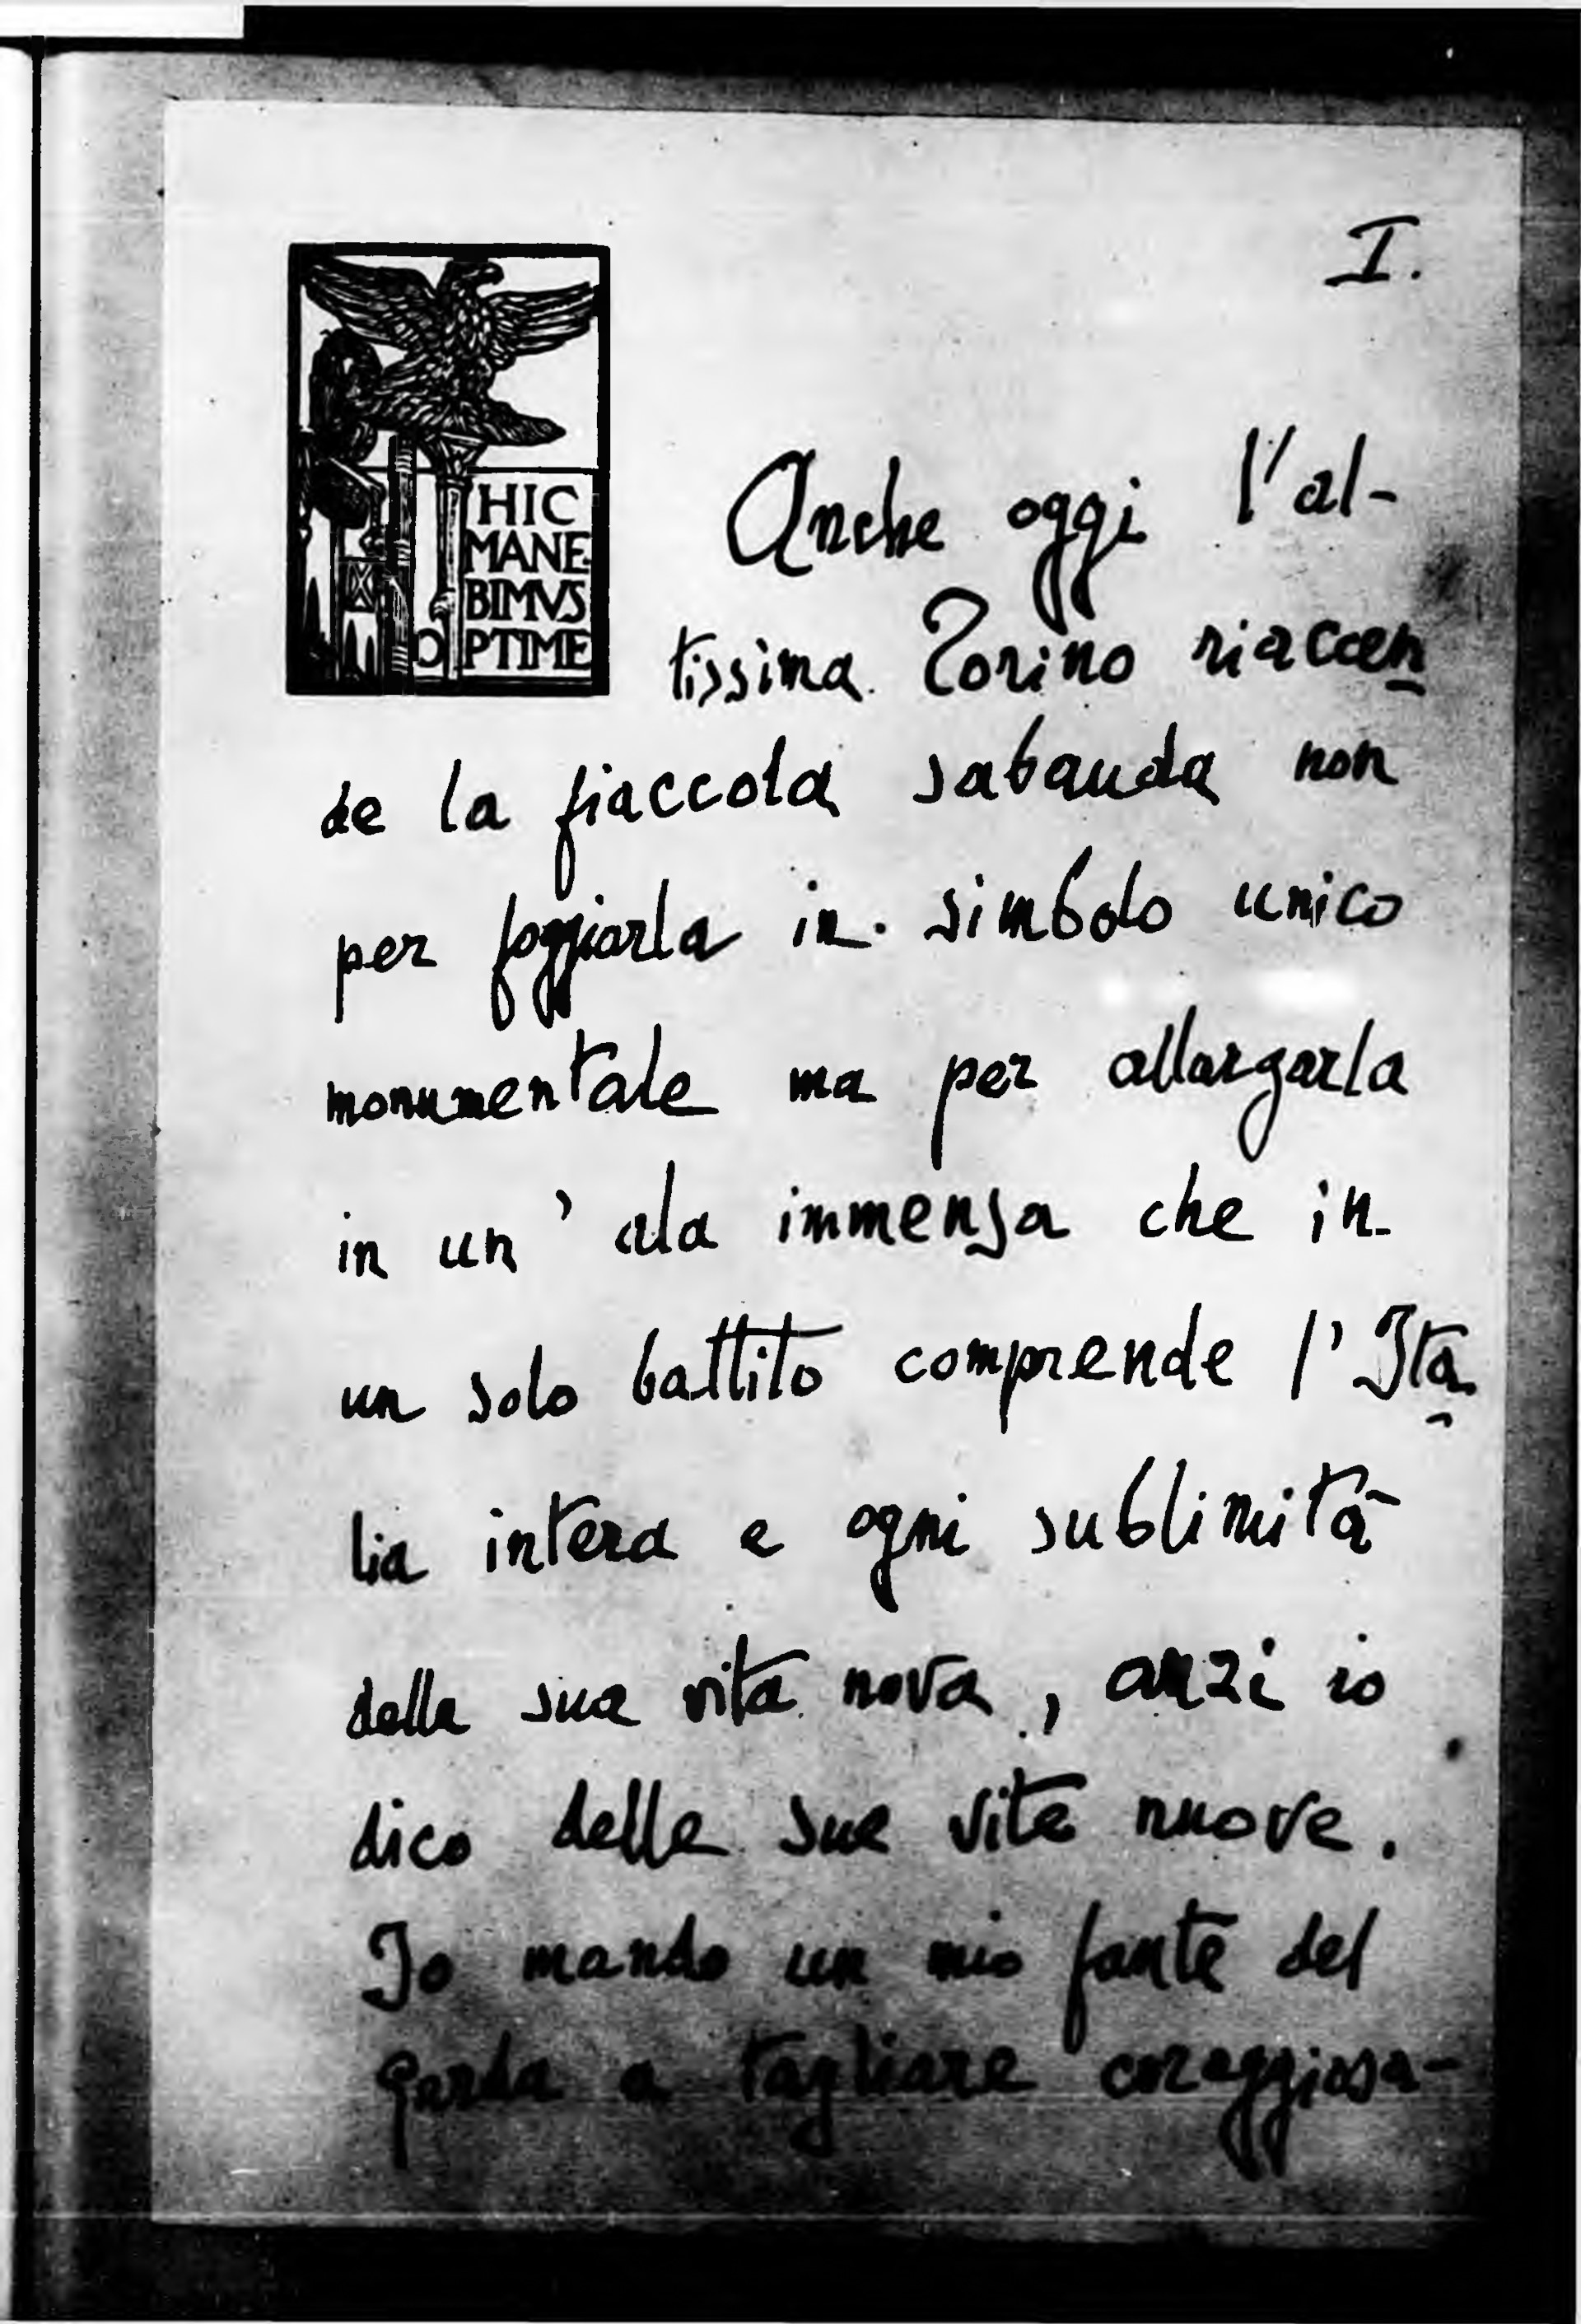 I.
HIC
MANE-
BIMVS
OPTIME
Anche oggi l'al-
tissima Torino riaccen
de la fiaccola sabauda non
per foggiarla in simbolo unico
monumentale ma per allargarla
in un' ala immensa che in
un solo battito comprende l'Ita
lia intera e ogni sublimità
della sua vita nova, anzi io
dico delle sue vite nuove.
Io mando un mio fante del
garda a tagliare coraggiosa-